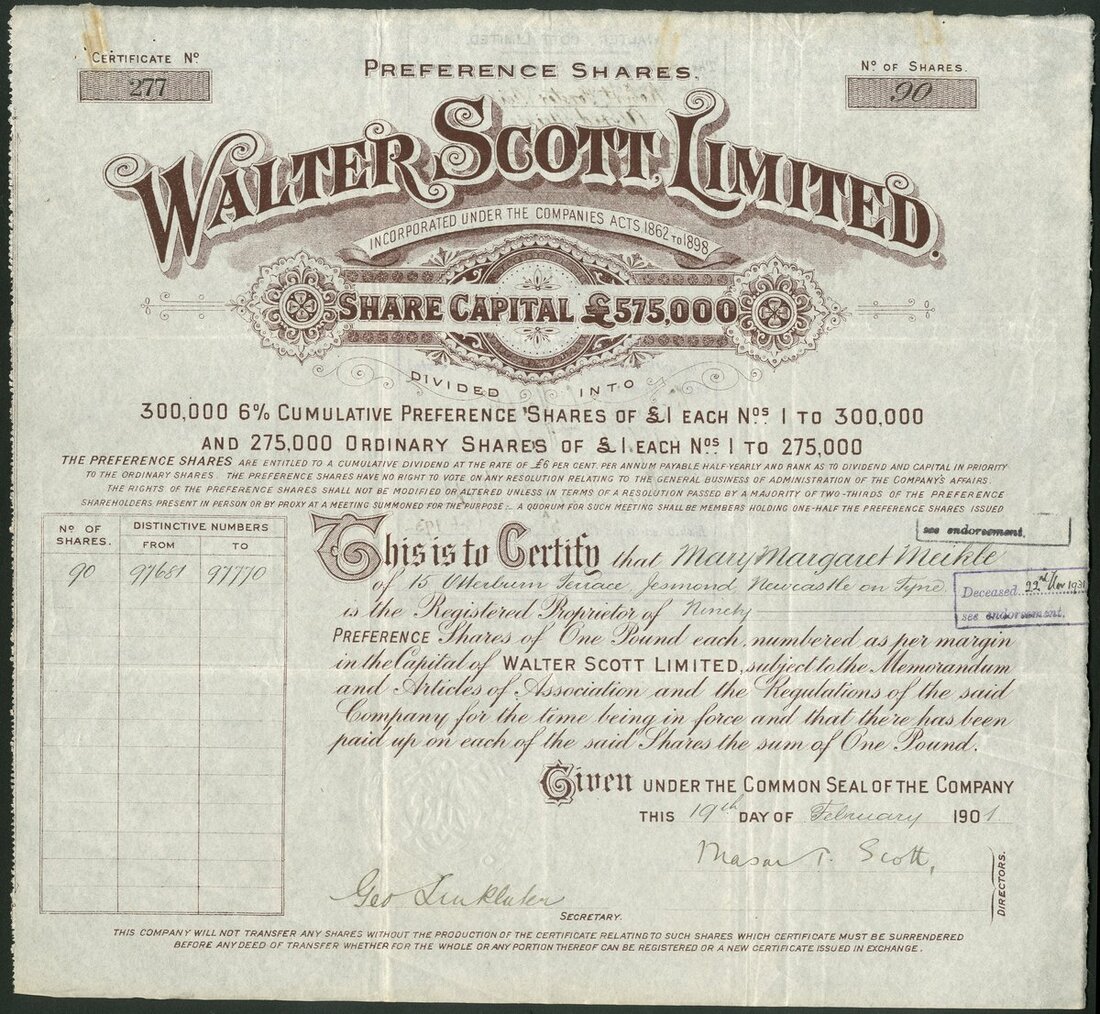 CERTIFICATE Nº
277
PREFERENCE SHARES.
Nº OF SHARES.
90
WALTER SCOTT, LIMITED.
INCORPORATED UNDER THE COMPANIES ACTS, 1862 TO 1898
SHARE CAPITAL £575,000
DIVIDED INTO
300,000 6% CUMULATIVE PREFERENCE SHARES OF £1 EACH Nºs 1 TO 300,000
AND 275,000 ORDINARY SHARES OF £1 EACH Nºs 1 TO 275,000
THE PREFERENCE SHARES ARE ENTITLED TO A CUMULATIVE DIVIDEND AT THE RATE OF £6 PER CENT. PER ANNUM PAYABLE HALF-YEARLY AND RANK AS TO DIVIDEND AND CAPITAL IN PRIORITY
TO THE ORDINARY SHARES. THE PREFERENCE SHARES HAVE NO RIGHT TO VOTE ON ANY RESOLUTION RELATING TO THE GENERAL BUSINESS OF ADMINISTRATION OF THE COMPANY'S AFFAIRS.
THE RIGHTS OF THE PREFERENCE SHARES SHALL NOT BE MODIFIED OR ALTERED UNLESS IN TERMS OF A RESOLUTION PASSED BY A MAJORITY OF TWO-THIRDS OF THE PREFERENCE
SHAREHOLDERS PRESENT IN PERSON OR BY PROXY AT A MEETING SUMMONED FOR THE PURPOSE ... A QUORUM FOR SUCH MEETING SHALL BE MEMBERS HOLDING ONE-HALF THE PREFERENCE SHARES ISSUED
see endorsement.
Nº OF SHARES.
DISTINCTIVE NUMBERS
FROM TO
90 97681 97770
This is to Certify that Mary Margaret Meikle
of 15 Otterburn Terrace Jesmond Newcastle on Tyne
Deceased. 22nd Nov 193
see endorsement.
is the Registered Proprietor of Ninety
PREFERENCE Shares of One Pound each, numbered as per margin
in the Capital of WALTER SCOTT LIMITED, subject to the Memorandum
and Articles of Association and the Regulations of the said
Company for the time being in force and that there has been
paid up on each of the said Shares the sum of One Pound.
Given UNDER THE COMMON SEAL OF THE COMPANY
THIS 19th DAY OF February 1901
Mason T. Scott,
DIRECTORS.
Geo Linklater
SECRETARY.
THIS COMPANY WILL NOT TRANSFER ANY SHARES WITHOUT THE PRODUCTION OF THE CERTIFICATE RELATING TO SUCH SHARES WHICH CERTIFICATE MUST BE SURRENDERED
BEFORE ANY DEED OF TRANSFER WHETHER FOR THE WHOLE OR ANY PORTION THEREOF CAN BE REGISTERED OR A NEW CERTIFICATE ISSUED IN EXCHANGE.